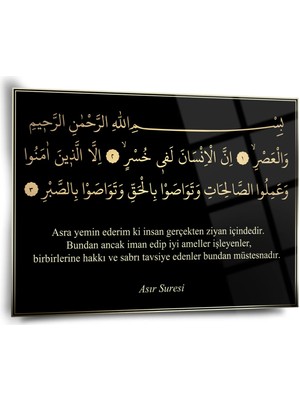 بِسْمِ اللهِ الرَّحْمٰنِ الرَّحِيمِ
وَالْعَصْرِۙ ﴿١﴾ اِنَّ الْاِنْسَانَ لَفٖى خُسْرٍۙ ﴿٢﴾ اِلَّا الَّذٖينَ اٰمَنُوا
وَعَمِلُوا الصَّالِحَاتِ وَتَوَاصَوْا بِالْحَقِّ وَتَوَاصَوْا بِالصَّبْرِ ﴿٣﴾
Asra yemin ederim ki insan gerçekten ziyan içindedir.
Bundan ancak iman edip iyi ameller işleyenler,
birbirlerine hakkı ve sabrı tavsiye edenler bundan müstesnadır.
Asır Suresi